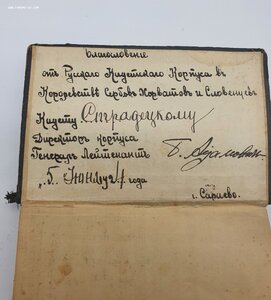 Благословение
отъ Русскаго Кадетскаго Корпуса въ
Королевствѣ Сербовъ Хорватовъ и Словенцевъ
Кадету Страдецкому
Директоръ корпуса
Генералъ Лейтенантъ Б. Адамович
года
г. Сараево.